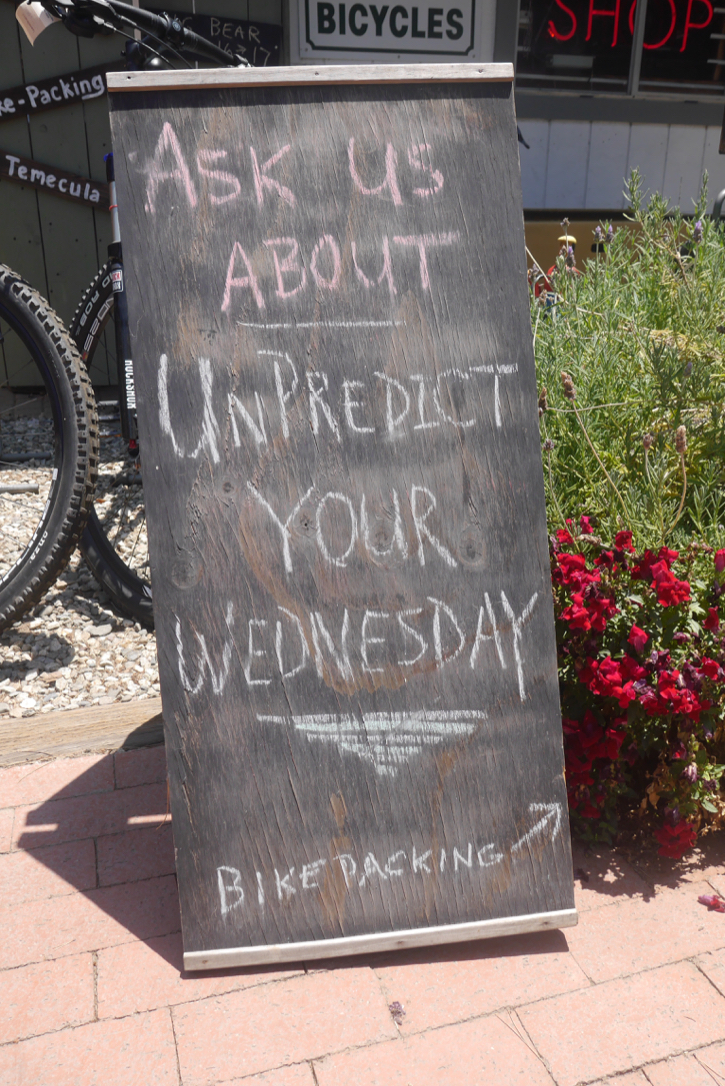 BICYCLES
SHOP
BEAR
ke-Packing
Temecula
ASK US
ABOUT
UNPREDICT
YOUR
WEDNESDAY
BIKEPACKING
ROCKSHOX